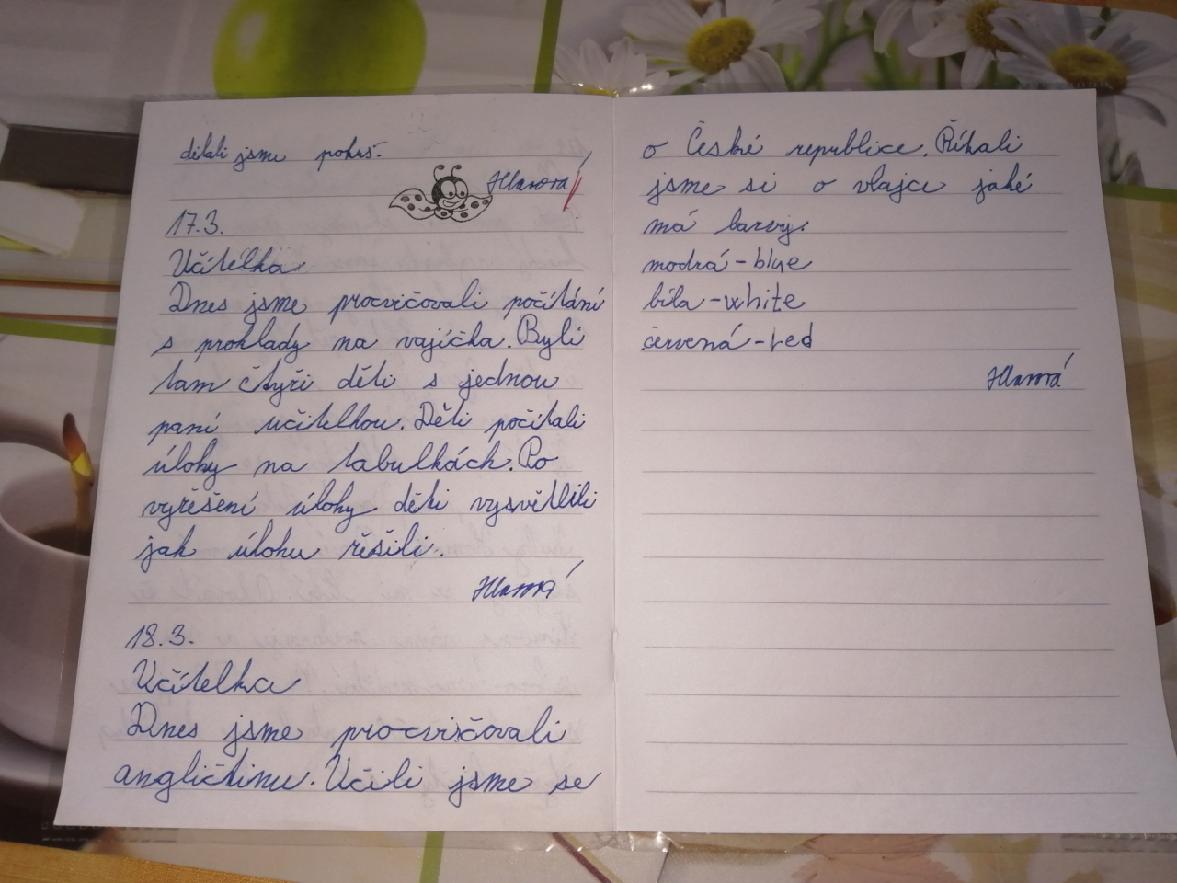 dělali jsme pokus.
17.3.
Učitelka
Dnes jsme procvičovali počítání
s proklady na vajíčka. Byli
tam čtyři děti s jednou
paní učitelkou. Děti počítali
úlohy na tabulkách. Po
vyřešení úlohy děti vysvětlili
jak úlohu řěšili.
18.3.
Učitelka
Dnes jsme procvičovali
angličtinu. Učili jsme se
o České republice. Říkali
jsme si o vlajce jaké
má barvy:
modrá - blue
bíla - white
červená - red